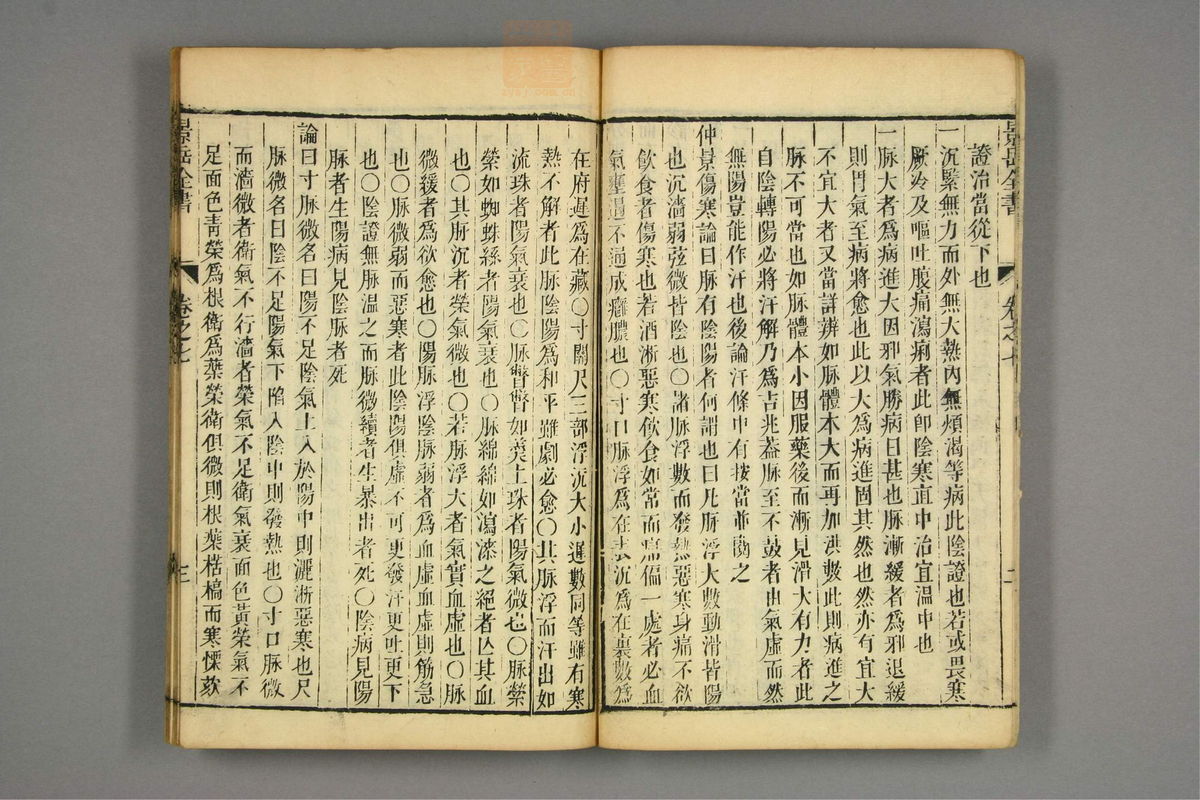 景岳全書 卷之七 二
證治當從下也
一沉緊無力而外無大熱內無煩渴等病此陰證也若或畏寒
厥冷及嘔吐腹痛瀉痢者此卽陰寒直中治宜溫中也
一脉大者爲病進大因邪氣勝病日甚也脉漸緩者爲邪退緩
則胃氣至病將愈也此以大爲病進固其然也然亦有宜大
不宜大者又當詳辨如脉體本大而再加洪數此則病進之
脉不可當也如脉體本小因服藥後而漸見滑大有力者此
自陰轉陽必將汗解乃爲吉兆葢脉至不鼓者由氣虛而然
無陽豈能作汗也後論汗條中有按當並閱之
仲景傷寒論曰脉有陰陽者何謂也曰凡脉浮大數動滑皆陽
也沉濇弱弦微皆陰也〇諸脉浮數而發熱惡寒身痛不欲
飲食者傷寒也若洒淅惡寒飲食如常而痛偏一處者必血
氣壅遏不通成癰膿也〇寸口脉浮爲在表沉爲在裏數爲
在府遲爲在藏〇寸關尺三部浮沉大小遲數同等雖有寒
熱不解者此脉陰陽爲和平雖劇必愈〇其脉浮而汗出如
流珠者陽氣衰也〇脉瞥瞥如羮上珠者陽氣微也〇脉縈
縈如蜘蛛絲者陽氣衰也〇脉綿綿如瀉漆之絕者亾其血
微緩者爲欲愈也〇陽脉浮陰脉弱者爲血虛血虛則筋急
也〇其脉沉者榮氣微也〇若脉浮大者氣實血虛也〇脉
也〇脉微弱而惡寒者此陰陽俱虛不可更發汗更吐更下
也〇陰證無脉温之而脉微續者生暴出者死〇陰病見陽
脉者生陽病見陰脉者死
論曰寸脉微名曰陽不足陰氣上入於陽中則灑淅惡寒也尺
脉微名曰陰不足陽氣下陷入陰中則發熱也〇寸口脉微
而濇微者衛氣不行濇者榮氣不足衛氣衰面色黃榮氣不
足面色靑榮爲根衛爲葉榮衛俱微則根葉枯槁而寒慄欬
景岳全書 卷之七 三